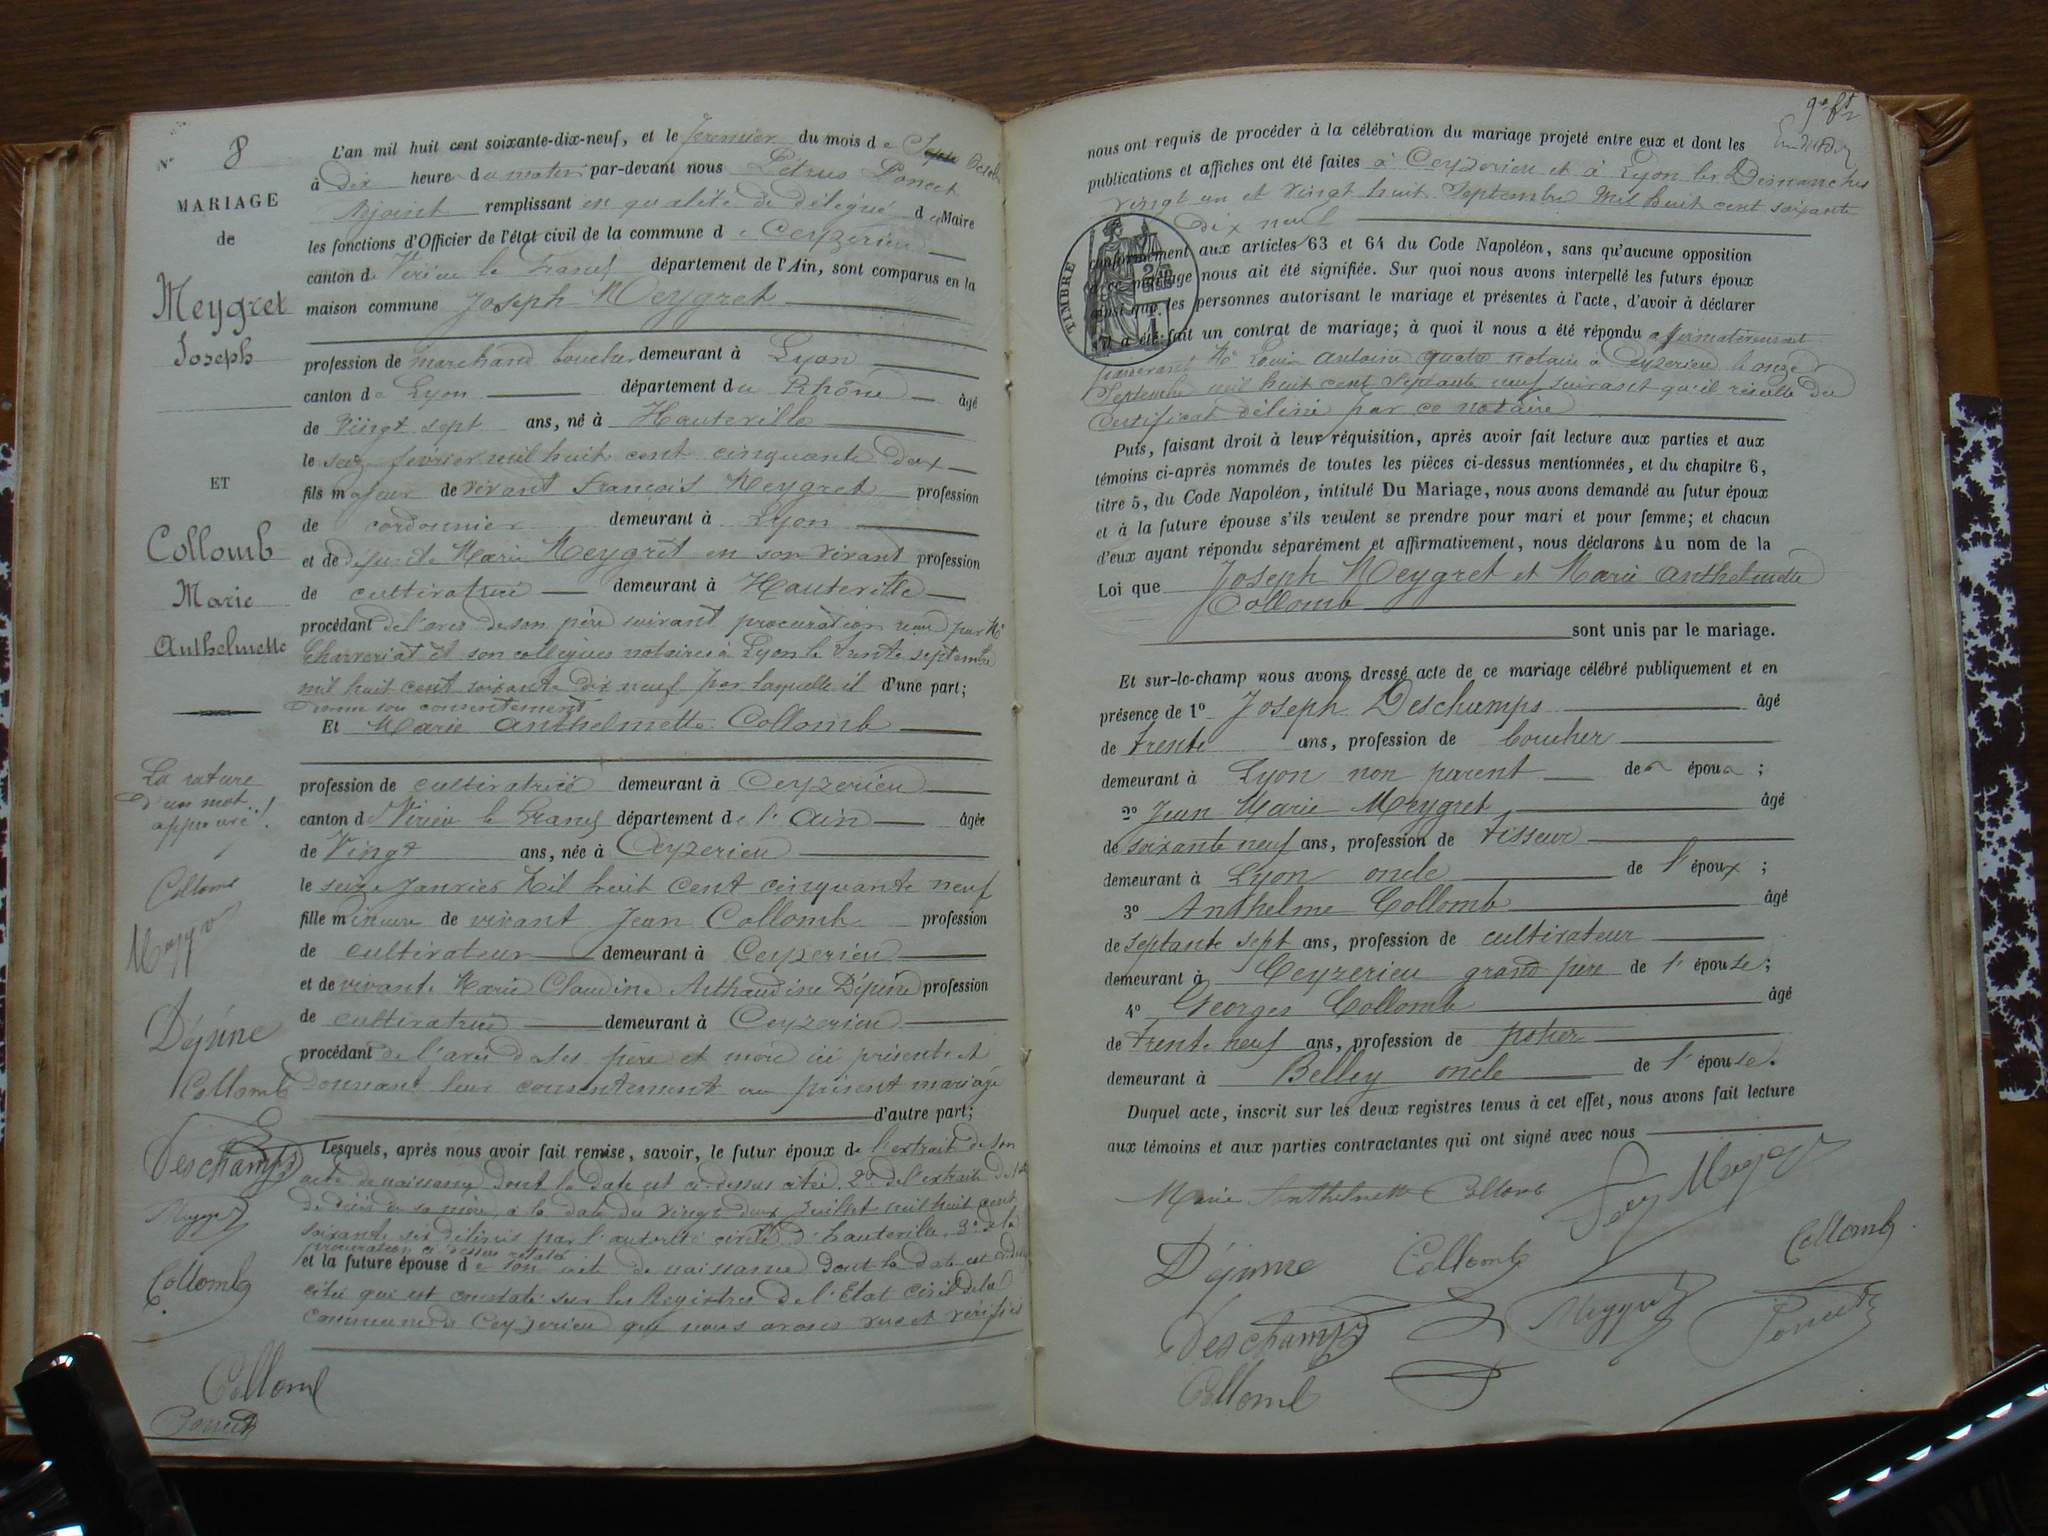 N° 8
MARIAGE
de
Meygret
Joseph
ET
Collomb
Marie
Anthelmette
La rature
d'un mot
approuvé !
Collomb
Déjéine
Collomb
Deschamps
Meygret
Collomb
Collomb
Poncet
L'an mil huit cent soixante-dix-neuf, et le premier du mois de Septe Octobre
à dix heure du matin par-devant nous Pétrus Poncet
Ajoint remplissant en qualité de délégué du Maire
les fonctions d'Officier de l'état civil de la commune de Ceyzerieu
canton de Virieu le Grand département de l'Ain, sont comparus en la
maison commune Joseph Meygret
profession de marchand boucher demeurant à Lyon
canton de Lyon département du Rhône âgé
de Vingt sept ans, né à Hauteville
le seize février mil huit cent cinquante deux
fils majeur de vivant François Meygret profession
de cordonnier demeurant à Lyon
et de défunte Marie Meygret en son vivant profession
de cultivatrice demeurant à Hauteville
procédant de l'avis de son père suivant procuration reçue par Me
Charveriat et son collègues notaires à Lyon le trente septembre
mil huit cent soixante dix neuf par laquelle il d'une part;
donne son consentement
Et Marie Anthelmette Collomb
profession de cultivatrice demeurant à Ceyzerieu
canton de Virieu le Grand département de l'Ain âgée
de Vingt ans, née à Ceyzerieu
le seize Janvier Mil huit Cent cinquante neuf
fille mineure de vivant Jean Collomb profession
de cultivateur demeurant à Ceyzerieu
et de vivante Marie Claudine Déjéine profession
de cultivatrice demeurant à Ceyzerieu
procédant de l'avis de ses père et mère ici présents et
donnant leur consentement au présent mariage
d'autre part;
Lesquels, après nous avoir fait remise, savoir, le futur époux de l'extrait de son
acte de naissance dont la date est ci-dessus citée 2° de l'extrait de l'acte
de décès de sa mère à la date du vingt deux Juillet mil huit cent
soixante six délivrés par l'autorité civile d'hauteville 3° de la
procuration ci dessus relatée
et la future épouse de son acte de naissance dont la date est ci-dessus
citée qui est constaté sur les Registres de l'Etat civil de la
commune de Ceyzerieu que nous avons vus et vérifiés
nous ont requis de procéder à la célébration du mariage projeté entre eux et dont les
publications et affiches ont été faites à Ceyzerieu et à Lyon les Dimanches
vingt un et vingt huit Septembre Mil huit cent soixante
dix neuf
conformément aux articles 63 et 64 du Code Napoléon, sans qu'aucune opposition
à ce mariage nous ait été signifiée. Sur quoi nous avons interpellé les futurs époux
ainsi que les personnes autorisant le mariage et présentes à l'acte, d'avoir à déclarer
s'il a été fait un contrat de mariage; à quoi il nous a été répondu affirmativement
pardevant Me Louis Antoine notaire à Ceyzerieu le onze
Septembre mil huit cent Septante neuf suivant qu'il résulte du
Certificat délivré par ce notaire
TIMBRE
Puis, faisant droit à leur réquisition, après avoir fait lecture aux parties et aux
témoins ci-après nommés de toutes les pièces ci-dessus mentionnées, et du chapitre 6,
titre 5, du Code Napoléon, intitulé Du Mariage, nous avons demandé au futur époux
et à la future épouse s'ils veulent se prendre pour mari et pour femme; et chacun
d'eux ayant répondu séparément et affirmativement, nous déclarons Au nom de la
Loi que Joseph Meygret et Marie Anthelmette
Collomb
sont unis par le mariage.
Et sur-le-champ nous avons dressé acte de ce mariage célébré publiquement et en
présence de 1° Joseph Deschamps âgé
de trente ans, profession de boucher
demeurant à Lyon non parent de époux ;
2° Jean Marie Meygret âgé
de soixante neuf ans, profession de tisseur
demeurant à Lyon oncle de l'époux ;
3° Anthelme Collomb âgé
de septante sept ans, profession de cultivateur
demeurant à Ceyzerieu grand père de l'épouse;
4° Georges Collomb âgé
de trente neuf ans, profession de potier
demeurant à Belley oncle de l'épouse.
Duquel acte, inscrit sur les deux registres tenus à cet effet, nous avons fait lecture
aux témoins et aux parties contractantes qui ont signé avec nous
Marie Anthelmette Collomb
Déjéine Collomb Collomb
Deschamps Meygret Poncet
Collomb